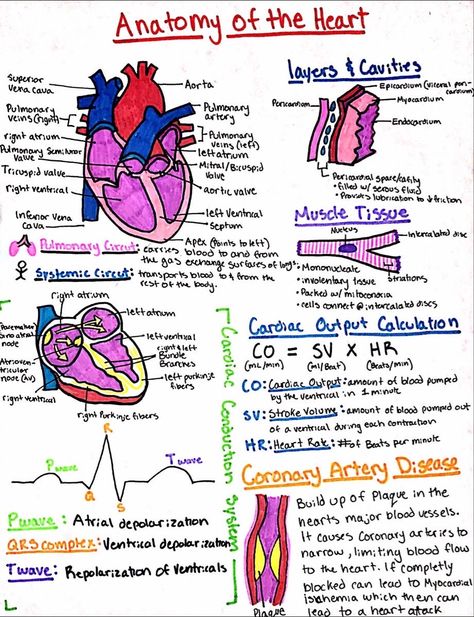 Anatomy of the Heart
Superior
vena cava
Aorta
Pulmonary
veins (right)
Pulmonary
artery
Pulmonary
veins (left)
right atrium
left atrium
Pulmonary Semilunar
Valve
Mitral/Bicuspid
Valve
Tricuspid valve
aortic valve
right ventrical
left Ventrical
Septum
Inferior Vena
cava
Apex (Points to left)
Pulmonary Circut: carries blood to and from
the gas exchange surfaces of lungs
Systemic Circut: transports blood to & from the
rest of the body.
Layers & Cavities
Epicardium (viceral pericardium)
Pericardium
Myocardium
Endocardium
Pericardial space/cavity
• filled w/ serous fluid
• Provides lubrication to ↓ friction
Muscle Tissue
Nucleus
intercalated disc
Striations
• Mononucleate
• involentary tissue
• Packed w/ mitocondria
• cells connect @ intercalated discs
right atrium
left atrium
Pacemaker
Sinoatrial
node
left ventrical
right & left
Bundle
Branches
Atrioven-
tricular
node (AV)
left purkinje
fibers
right ventrical
right Purkinje fibers
Cardiac Conduction System
R
P wave
T wave
Q
S
P wave: Atrial depolarization
QRS complex: Ventrical depolarization
T wave: Repolarization of Ventricals
Cardiac Output Calculation
CO = SV X HR
(mL/min) (ml/Beat) (Beats/min)
CO: Cardiac Output: amount of blood pumped
by the ventrical in 1 minute
SV: Stroke Volume: amount of blood pumped out
of a ventrical during each contraction
HR: Heart Rate: # of Beats per minute
Coronary Artery Disease
Build up of Plaque in the
hearts major blood vessels.
It causes Coronary arteries to
narrow, limiting blood flow
to the heart. If completly
blocked can lead to Myocardial
ishemia which then can
lead to a heart attack
Plaque